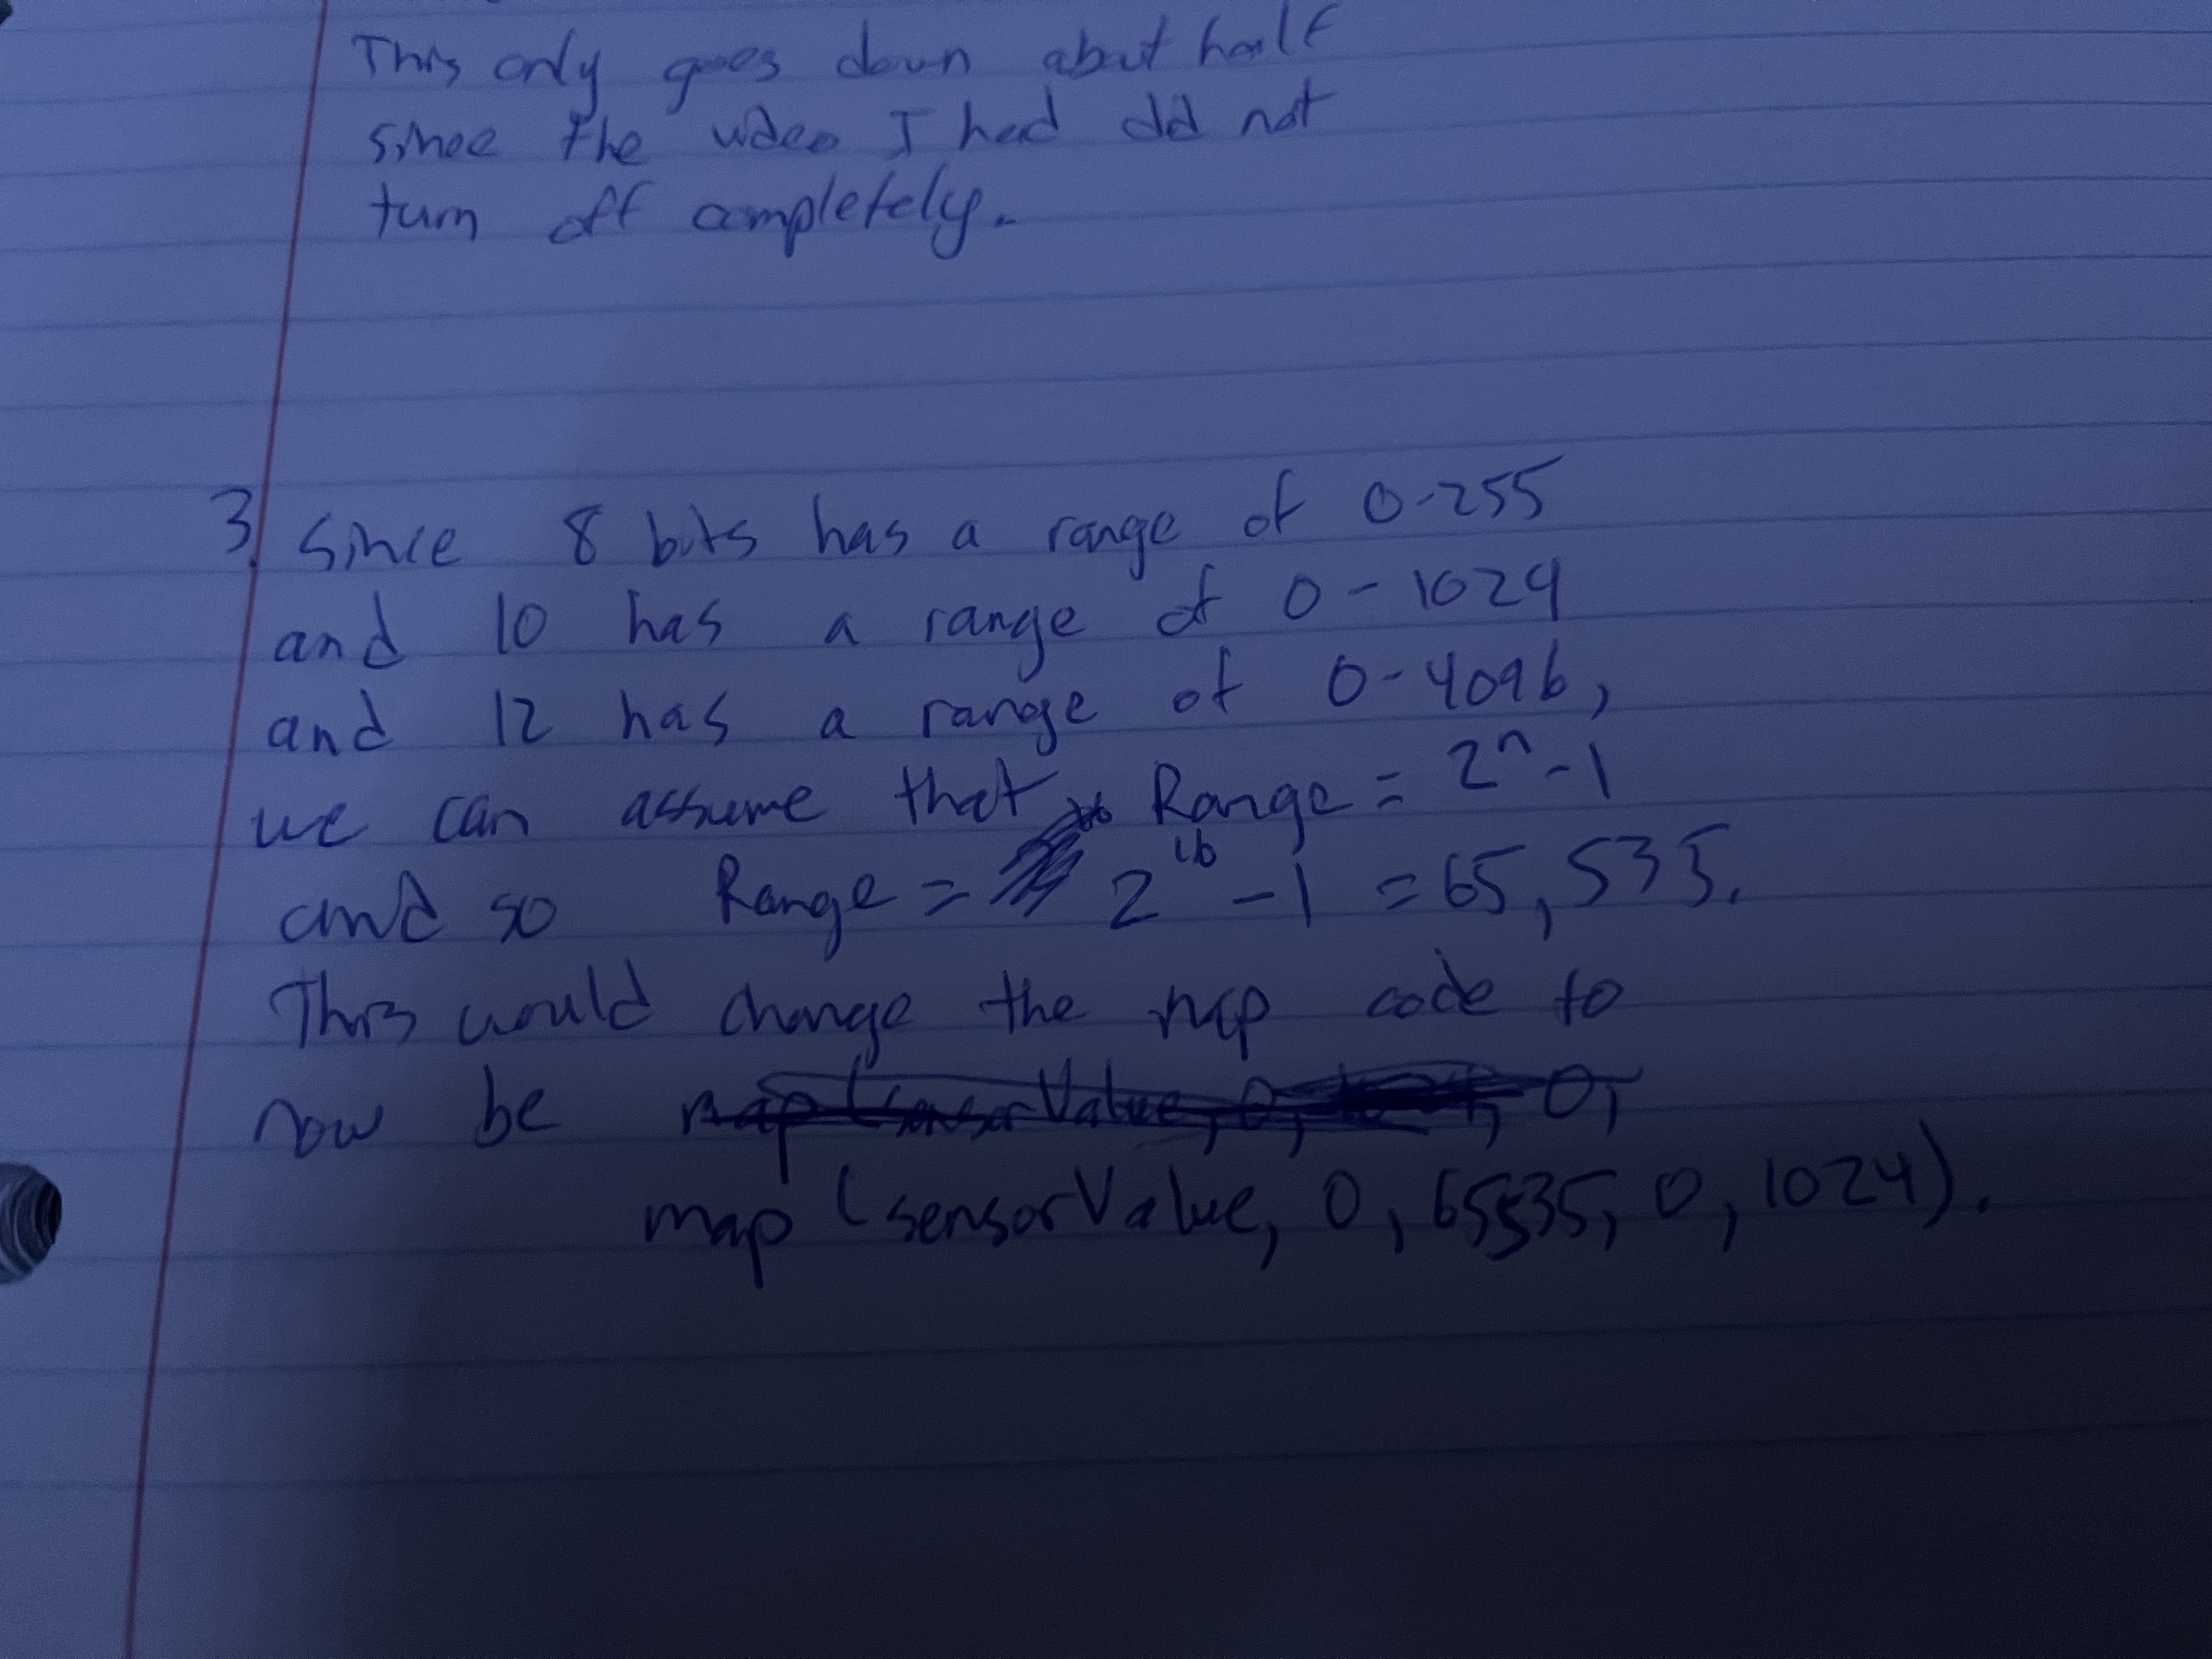 This only goes down about half
since the video I had did not
turn off completely.
3. Since 8 bits has a range of 0-255
and 10 has a range of 0-1024
and 12 has a range of 0-4096,
we can assume that Range = 2ⁿ-1
and so Range = 2¹⁶-1 = 65,535.
This would change the map code to
now be map (sensorValue, 0, 0,
map (sensorValue, 0, 65535, 0, 1024).